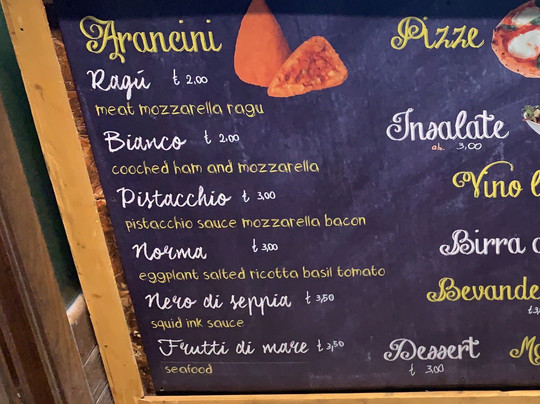 Arancini
Ragú € 2,00
meat mozzarella ragu
Bianco € 2,00
cooched ham and mozzarella
Pistacchio € 3,00
pistacchio sauce mozzarella bacon
Norma € 3,00
eggplant salted ricotta basil tomato
Nero di seppia € 3,50
squid ink sauce
Frutti di mare € 3,50
seafood
Pizze
Insalate
3,00
Vino
Birra
Bevande
Dessert
€ 3,00